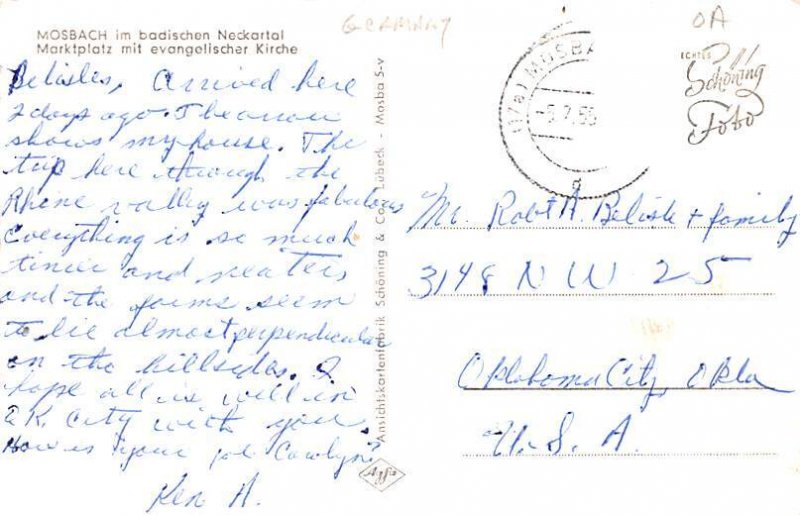 MOSBACH im badischen Neckartal
Marktplatz mit evangelischer Kirche
GERMANY
OA
Belisles, Arrived here
2 days ago. The arrow
shows my house. The
trip here through the
Rhine valley was fabulous
Everything is so much
tinier and neater,
and the farms seem
to lie almost perpendicular
on the hillsides. I
hope all is well in
O.K. City with you.
How is your job Carolyn?
Ken A.
Ansichtskartenfabrik Schöning & Co., Lübeck - Mosba S-v
Agfa
(17a) MOSBA
-5.7.56
ECHTES
Schöning
Foto
Mr. Robt A. Belisle + family
3148 N W 25
Oklahoma City, Okla
U. S. A.